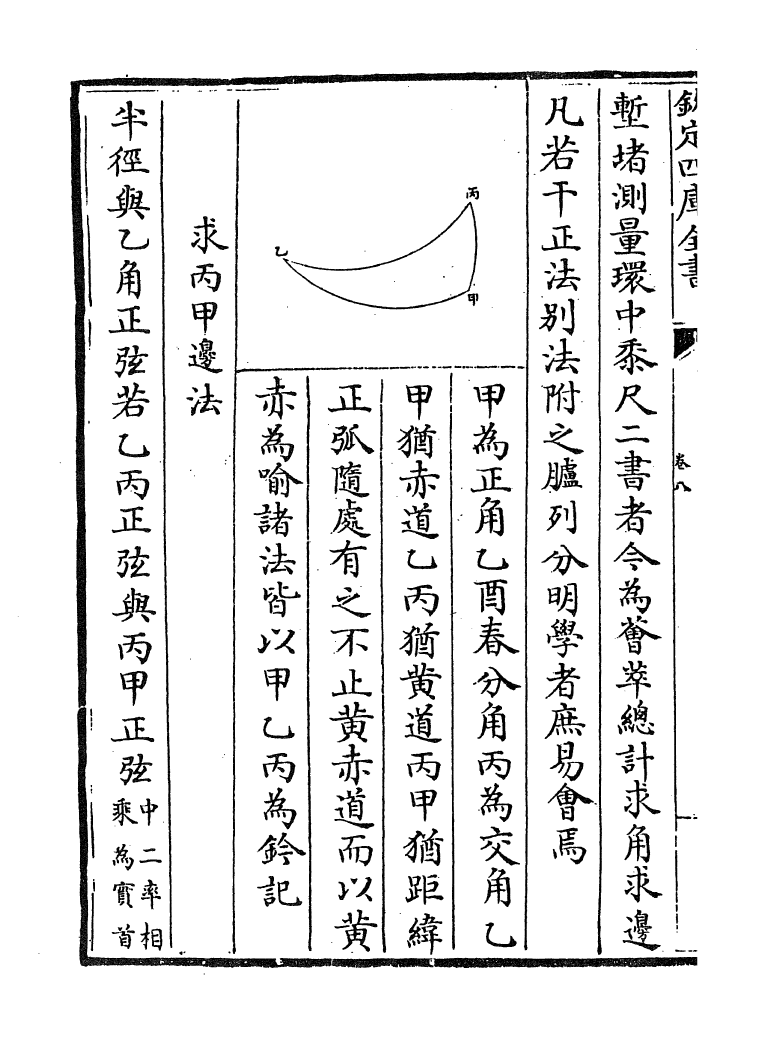 欽定四庫全書
卷八
塹堵測量環中黍尺二書者今為薈萃總計求角求邊
凡若干正法別法附之臚列分明學者庶易會焉
丙
乙
甲
甲為正角乙酉春分角丙為交角乙
甲猶赤道乙丙猶黄道丙甲猶距緯
正弧隨處有之不止黄赤道而以黄
赤為喻諸法皆以甲乙丙為鈐記
求丙甲邊法
半徑與乙角正弦若乙丙正弦與丙甲正弦
中二率相
乘為實首